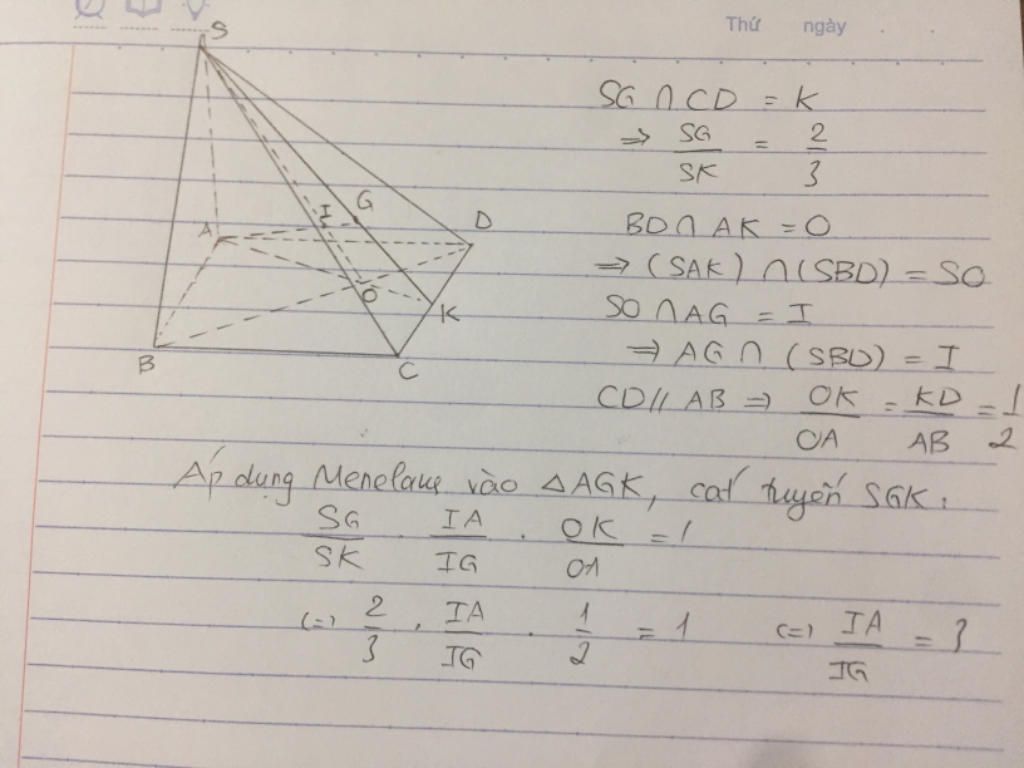 Thứ ngày . .
S
I G
A D
O
K
B C
SG ∩ CD = K
⇒ SG/SK = 2/3
BD ∩ AK = O
⇒ (SAK) ∩ (SBD) = SO
SO ∩ AG = I
⇒ AG ∩ (SBD) = I
CD // AB ⇒ OK/OA = KD/AB = 1/2
Áp dụng Menelaus vào △AGK, cát tuyến SGK:
SG/SK . IA/IG . OK/OA = 1
(=) 2/3 . IA/IG . 1/2 = 1 (=) IA/IG = 3